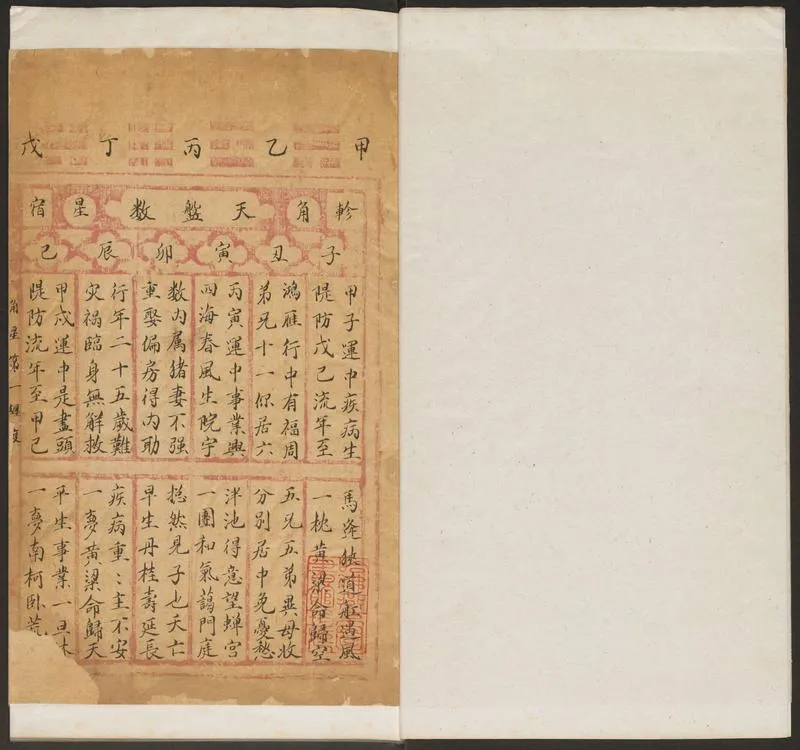 甲乙丙丁戊
軫角天盤數星宿
子丑寅卯辰巳
甲子運中疾病生
隄防戊己流年至
鴻雁行中有福周
弟兄十一你居六
丙寅運中事業興
四海春風生院宇
数内属猪妻不强
重娶偏房得内助
行年二十五歲難
灾禍臨身無解救
甲戌運中是盡頭
隄防流年至甲己
馬逢狹道船遇風
一枕黄梁命歸空
五兄五弟異母收
分别居中免憂愁
泮池得意望蟬宮
一團和氣藹門庭
搃然見子也夭亡
早生丹桂壽延長
疾病重〻主不安
一夢黄梁命歸天
平生事業一旦休
一夢南柯卧荒
角星第一